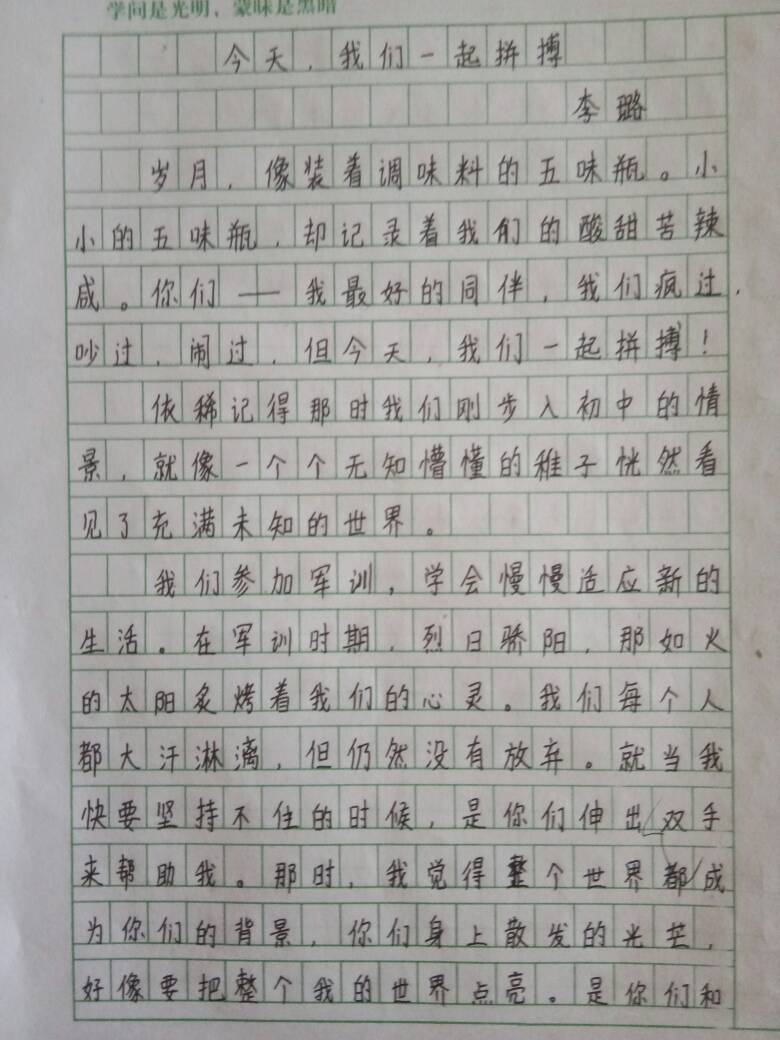 学问是光明，蒙昧是黑暗
今天，我们一起拼搏
李璐
岁月，像装着调味料的五味瓶。小
小的五味瓶，却记录着我们的酸甜苦辣
咸。你们——我最好的同伴，我们疯过，
吵过，闹过，但今天，我们一起拼搏！
依稀记得那时我们刚步入初中的情
景，就像一个个无知懵懂的稚子恍然看
见了充满未知的世界。
我们参加军训，学会慢慢适应新的
生活。在军训时期，烈日骄阳，那如火
的太阳炙烤着我们的心灵。我们每个人
都大汗淋漓，但仍然没有放弃。就当我
快要坚持不住的时候，是你们伸出双手
来帮助我。那时，我觉得整个世界都成
为你们的背景，你们身上散发的光芒，
好像要把整个我的世界点亮。是你们和